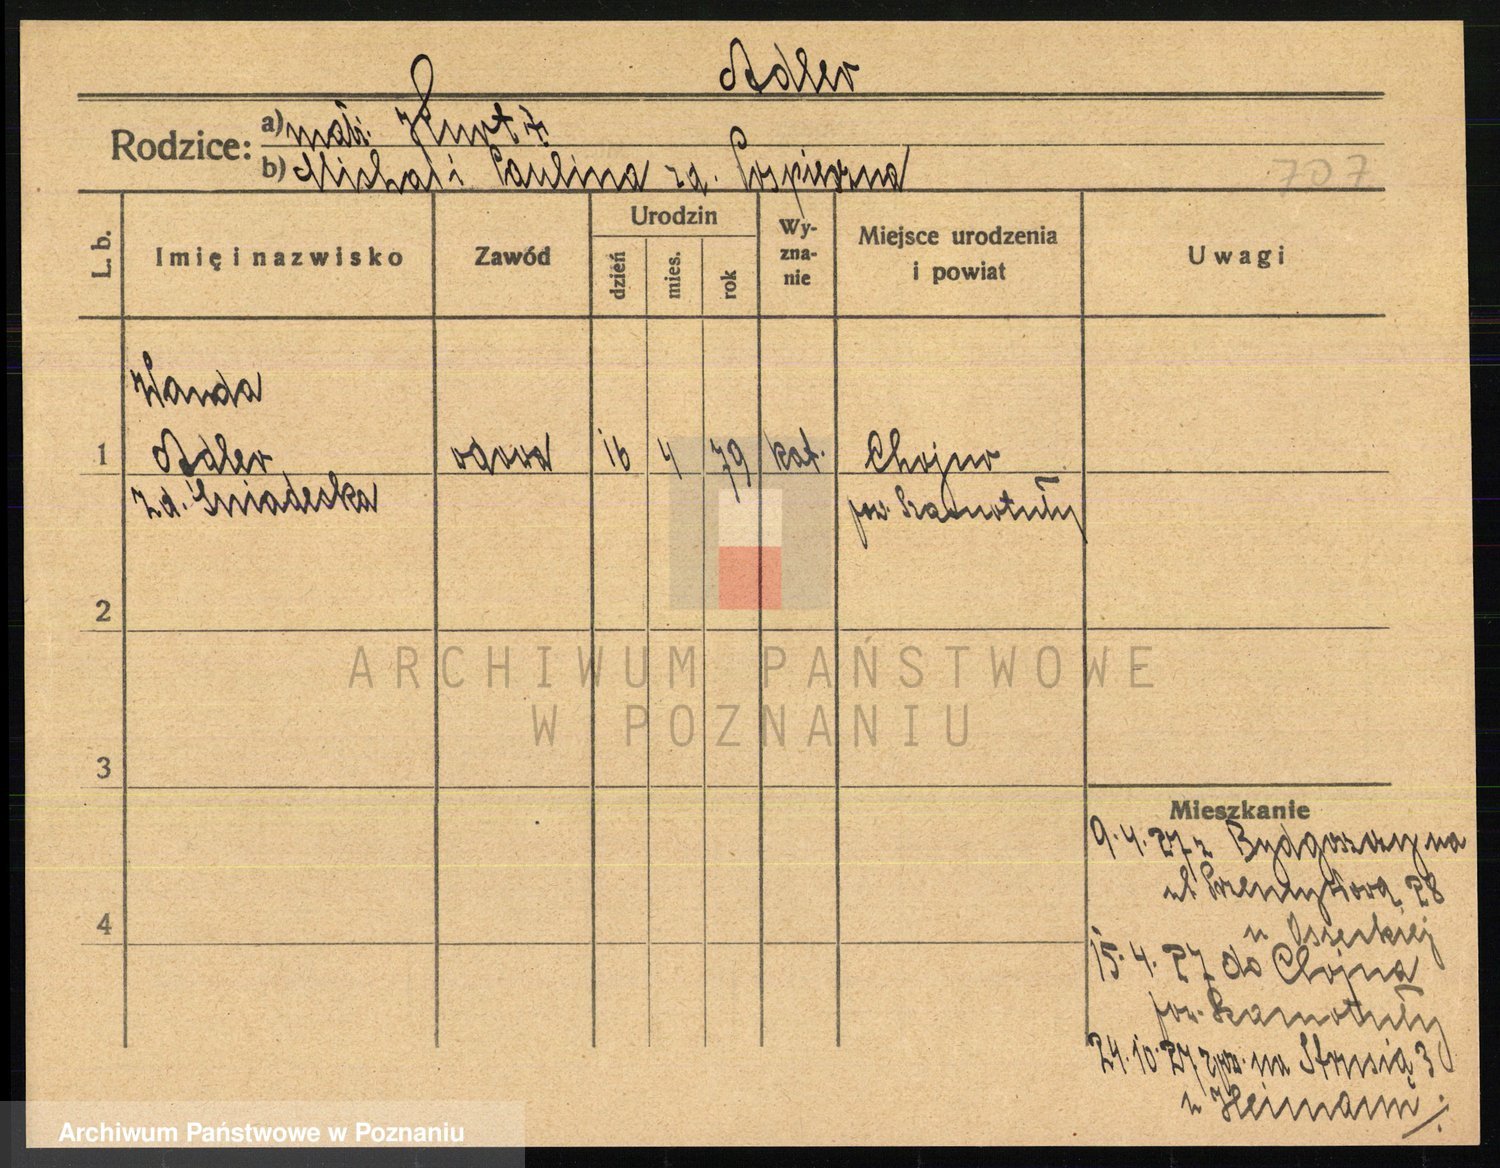 Adler
Rodzice: a) mąż. Kurt †.
b) Michał i Paulina zd. Pospieszna
707
L. b.
Imię i nazwisko
Zawód
Urodzin
dzień
mies.
rok
Wy-
zna-
nie
Miejsce urodzenia
i powiat
Uwagi
Wanda
1 Adler wdowa 16 4 79 kat. Chojno
zd. Śniadecka pow. Szamotuły
2
3
4
Mieszkanie
9.4.27 z Bydgoszczy na
ul. Przemysłową 28
u Osseckiej
15.4.27 do Chojna
pow. Szamotuły
24.10.27 na Strusią 3
u Heimann
ARCHIWUM PAŃSTWOWE
W POZNANIU
Archiwum Państwowe w Poznaniu